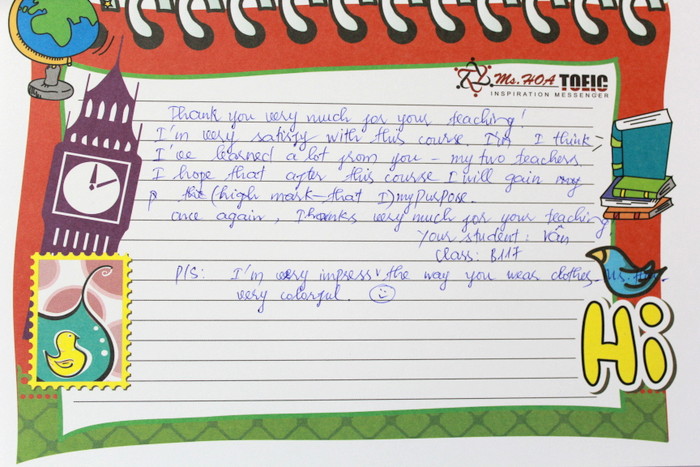 Ms. HOA TOEIC
INSPIRATION MESSENGER
Thank you very much for your teaching!
I'm very satisfy with this course. I think
I've learned a lot from you - my two teachers
I hope that after this course I will gain my
the (high mark that I) my purpose.
once again, Thanks very much for your teaching.
Your student: Vân
Class: B117
P/S: I'm very impress the way you wear clothes.
very colorful. ☺
Hi